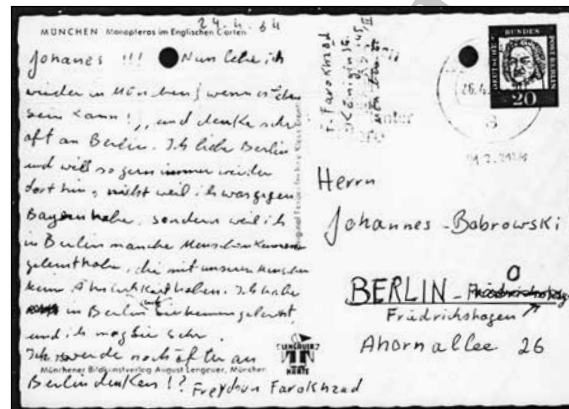 24.4.64
MÜNCHEN Monopteros im Englischen Garten
Johanes !!! Nun lebe ich
wieder in München, wenn es
sein kann!, und denke sehr
oft an Berlin. Ich liebe Berlin
und will so gern immer wieder
dort hin, nicht weil ich was gegen
Bayern habe, sondern weil ich
in Berlin manche Menschen kennen
gelernt habe, die mit unseren Menschen
keine Ähnlichkeit haben. Ich habe
in Berlin Sie kennengelernt,
und ich mag Sie sehr.
Ich werde noch öfter an
Münchener Bildkunstverlag August Lengauer, München
Berlin denken!? Freydun Farokhzad
LENGAUER
KARTE
F. Farokhzad
Königinstr.
DEUTSCHE BUNDES POST BERLIN
20
Herrn
Johannes - Bobrowski
BERLIN - O
Friedrichshagen
Ahornallee 26